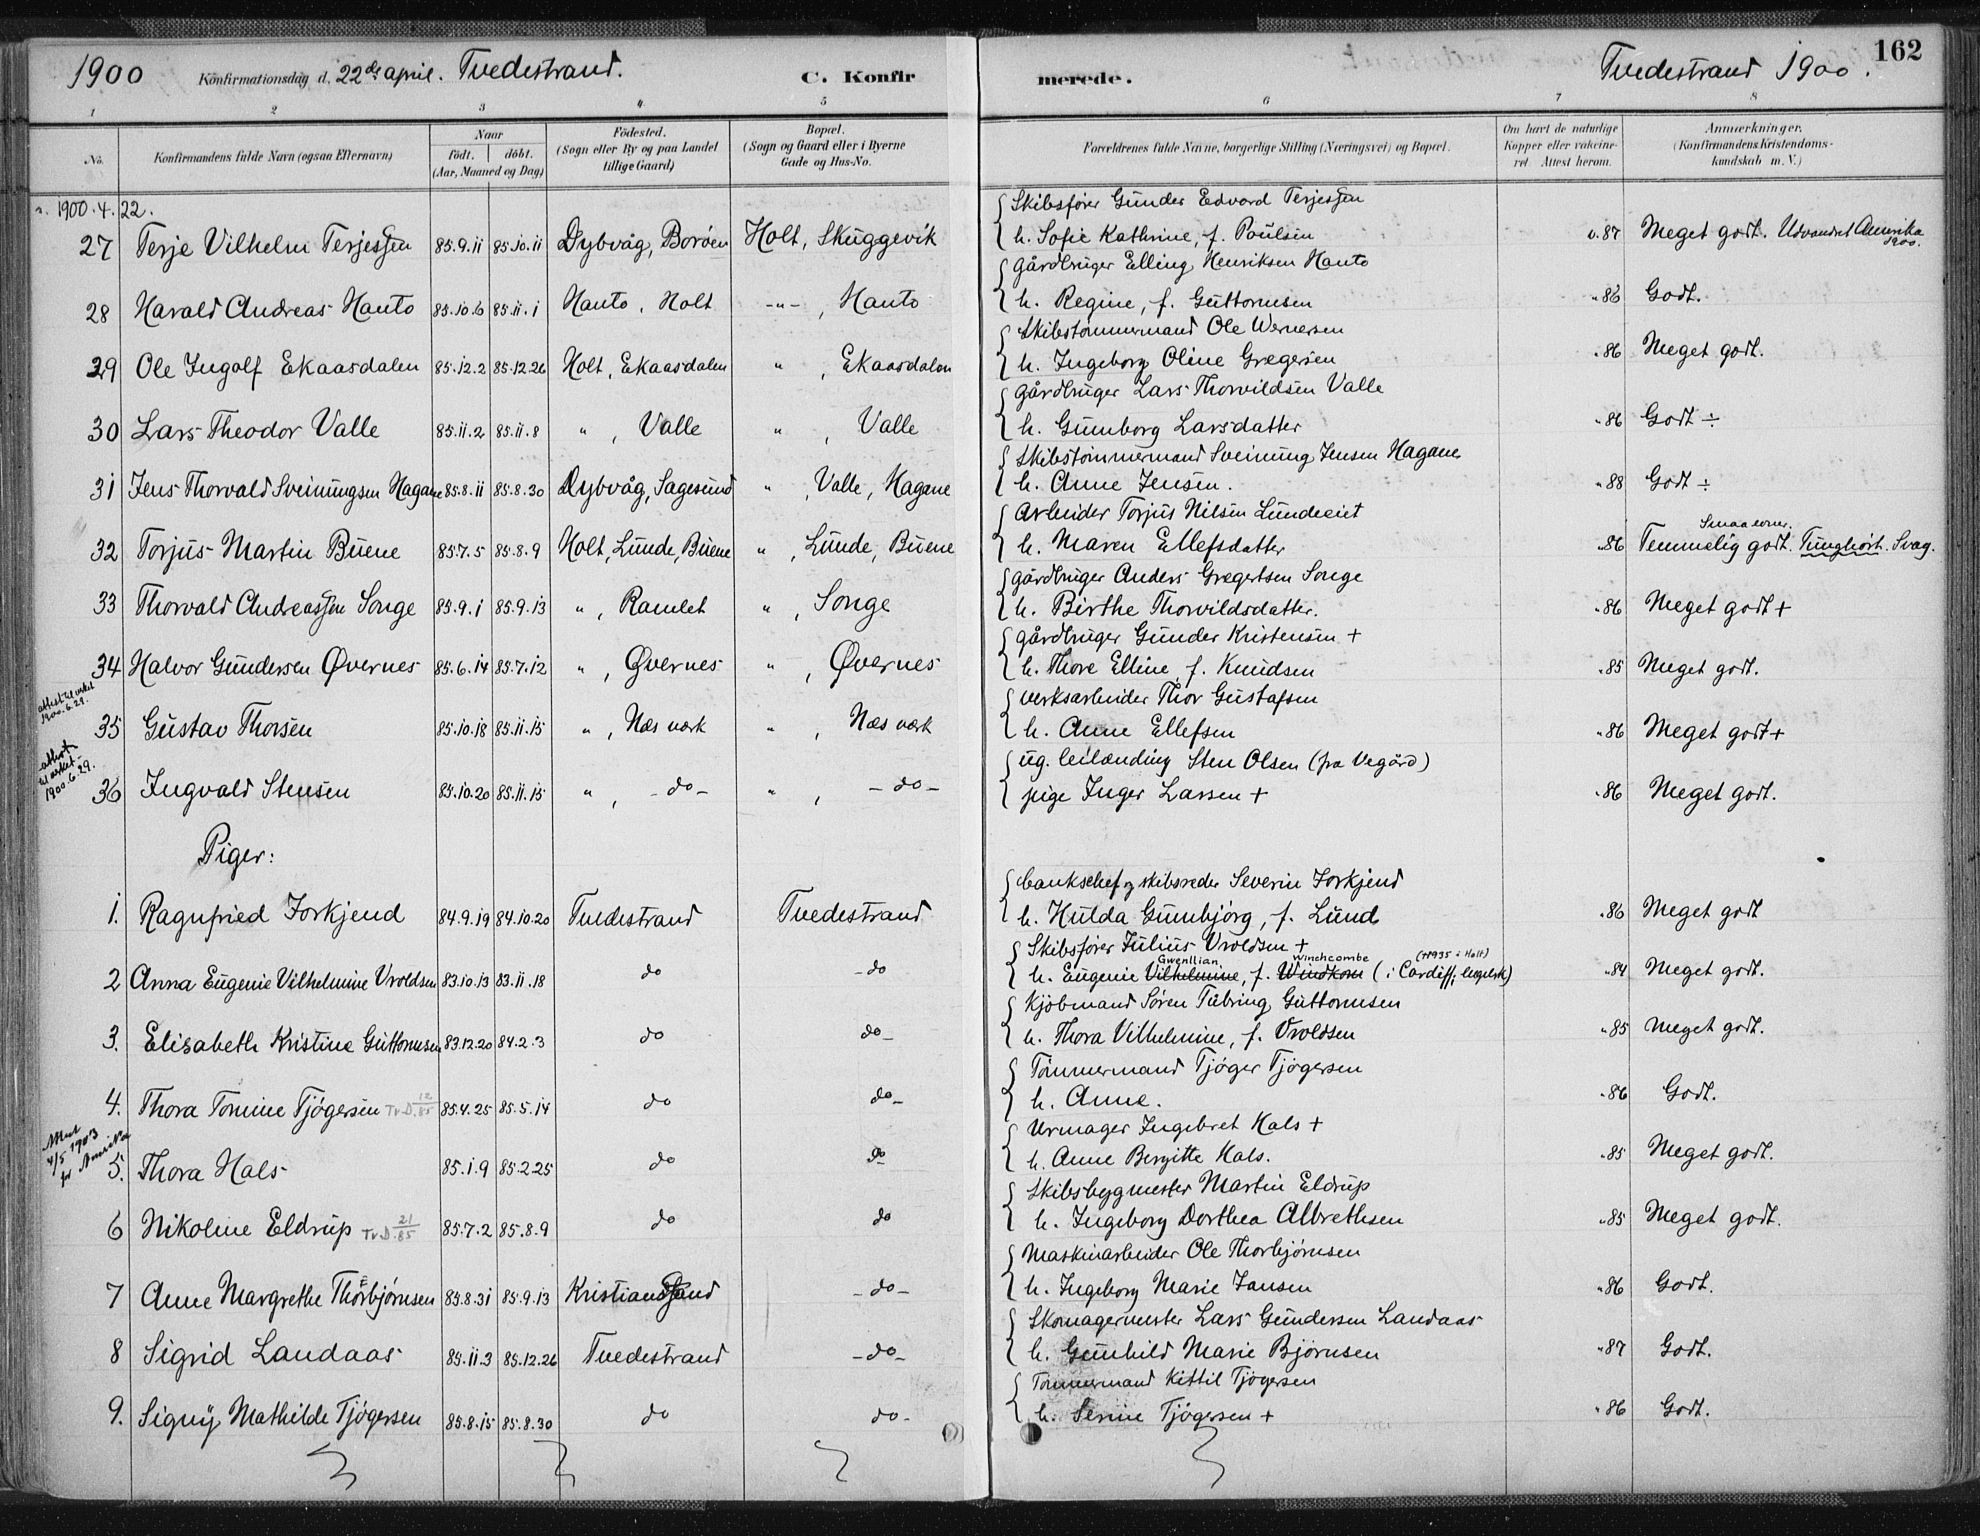 1900 Konfirmationsdag d. 22de april. Tvedestrand. C. Konfir merede. Tvedestrand 1900. 162
1 2 3 4 5 6 7 8
No. Konfirmandens fulde Navn (ogsaa Efternavn) Naar födt. döbt. (Aar, Maaned og Dag) Födested. (Sogn eller By og paa Landet tillige Gaard) Bopæl. (Sogn og Gaard eller i Byerne Gade og Hus-No. Forældrenes fulde Navne, borgerlige Stilling (Næringsvei) og Bopæl. Om havt de naturlige Kopper eller vakcineret. Attest herom. Anmærkninger. (Konfirmandens Kristendomskundskab m. V.)
1900.4.22.
Skibsfører Gunder Edvard Terjessen
27 Terje Vilhelm Terjessen 85.9.11 85.10.11 Dybvåg, Borøen Holt, Skuggevik h. Sofie Kathrine, f. Poulsen v. 87 Meget godt. Udvandret Amerika 1900.
gårdbruger Elling Henriksen Hanto
28 Harald Andreas Hanto 85.10.6 85.11.1 Hanto, Holt -"-, Hanto h. Regine, f. Guttormsen " 86 Godt.
Skibstømmermand Ole Wernersen
29 Ole Ingolf Ekaasdalen 85.12.2 85.12.26 Holt, Ekaasdalen ", Ekaasdalen h. Ingeborg Oline Gregersen " 86 Meget godt.
gårdbruger Lars Thorvildsen Valle
30 Lars Theodor Valle 85.11.2 85.11.8 ", Valle ", Valle h. Gunborg Larsdatter " 86 Godt ÷
Skibstømmermand Sveinung Jensen Hagane
31 Jens Thorvald Sveinungsen Hagane 85.8.11 85.8.30 Dybvåg, Sagesund ", Valle, Hagane h. Anne Jensen. " 88 Godt ÷
Arbeider Torjus Nilsen Lundeeiet
32 Torjus Martin Buene 85.7.5 85.8.9 Holt, Lunde, Buene ", Lunde, Buene h. Maren Ellefsdatter " 86 Temmelig godt. Tunghørt. Svag.
gårdbruger Anders Gregertsen Songe
33 Thorvald Andreassen Songe 85.9.1 85.9.13 ", Ramlet ", Songe h. Birthe Thorvildsdatter. " 86 Meget godt +
gårdbruger Gunder Kristensen +
34 Halvor Gundersen Øvernes 85.6.14 85.7.12 ", Øvernes ", Øvernes h. Thore Elline, f. Knudsen " 85 Meget godt.
attest til verket 1900.6.29.
verksarbeider Thor Gustafsen
35 Gustav Thorsen 85.10.18 85.11.15 ", Næs værk ", Næs værk h. Anne Ellefsen " 86 Meget godt +
attest til verket 1900.6.29.
ug. leilænding Sten Olsen (fra Vegård)
36 Ingvald Stensen 85.10.20 85.11.15 ", -do- ", -do- pige Inger Larsen + " 86 Meget godt.
Piger:
bankchef og skibsreder Severin Forkjend
1. Ragnfried Forkjend 84.9.19 84.10.20 Tvedestrand Tvedestrand h. Hulda Gunbjørg, f. Lund " 86 Meget godt
Skibsfører Julius Vroldsen +
Gwenllian Winchcombe (†1935 i Holt)
2 Anna Eugenie Vilhelmine Vroldsen 83.10.13 83.11.18 do -do h. Eugenie Vilhelmine, f. Windkom (i Cardiff, engelsk) " 84 Meget godt.
Kjøbmand Søren Tübring Guttormsen
3. Elisabeth Kristine Guttormsen 83.12.20 84.2.3 do do- h. Thora Vilhelmine, f. Vroldsen " 85 Meget godt.
Tømmermand Tjøger Tjøgersen
4. Thora Tomine Tjøgersen TvD. 12/85 85.4.25 85.5.14 do do- h. Anne. " 86 Godt.
4/5 1903
Urmager Ingebret Hals +
5. Thora Hals 85.1.9 85.2.25 do do h. Anne Bergitte Hals. " 85 Meget godt.
Skibsbygmester Martin Eldrup
6 Nikoline Eldrup TvD. 21/85 85.7.2 85.8.9 do do h. Ingeborg Dorthea Albrethsen " 85 Meget godt.
Maskinarbeider Ole Thorbjørnsen
7 Anne Margrethe Thorbjørnsen 85.8.31 85.9.13 Kristianssand -do- h. Ingeborg Marie Jansen " 86 Godt.
Skomagermester Lars Gundersen Landaas
8 Sigrid Landaas 85.11.3 85.12.26 Tvedestrand -do- h. Gunhild Marie Bjørnsen " 87 Godt.
Tømmermand Kittil Tjøgersen
9. Signy Mathilde Tjøgersen 85.8.15 85.8.30 do do- h. Serine Tjøgersen + " 86 Godt.